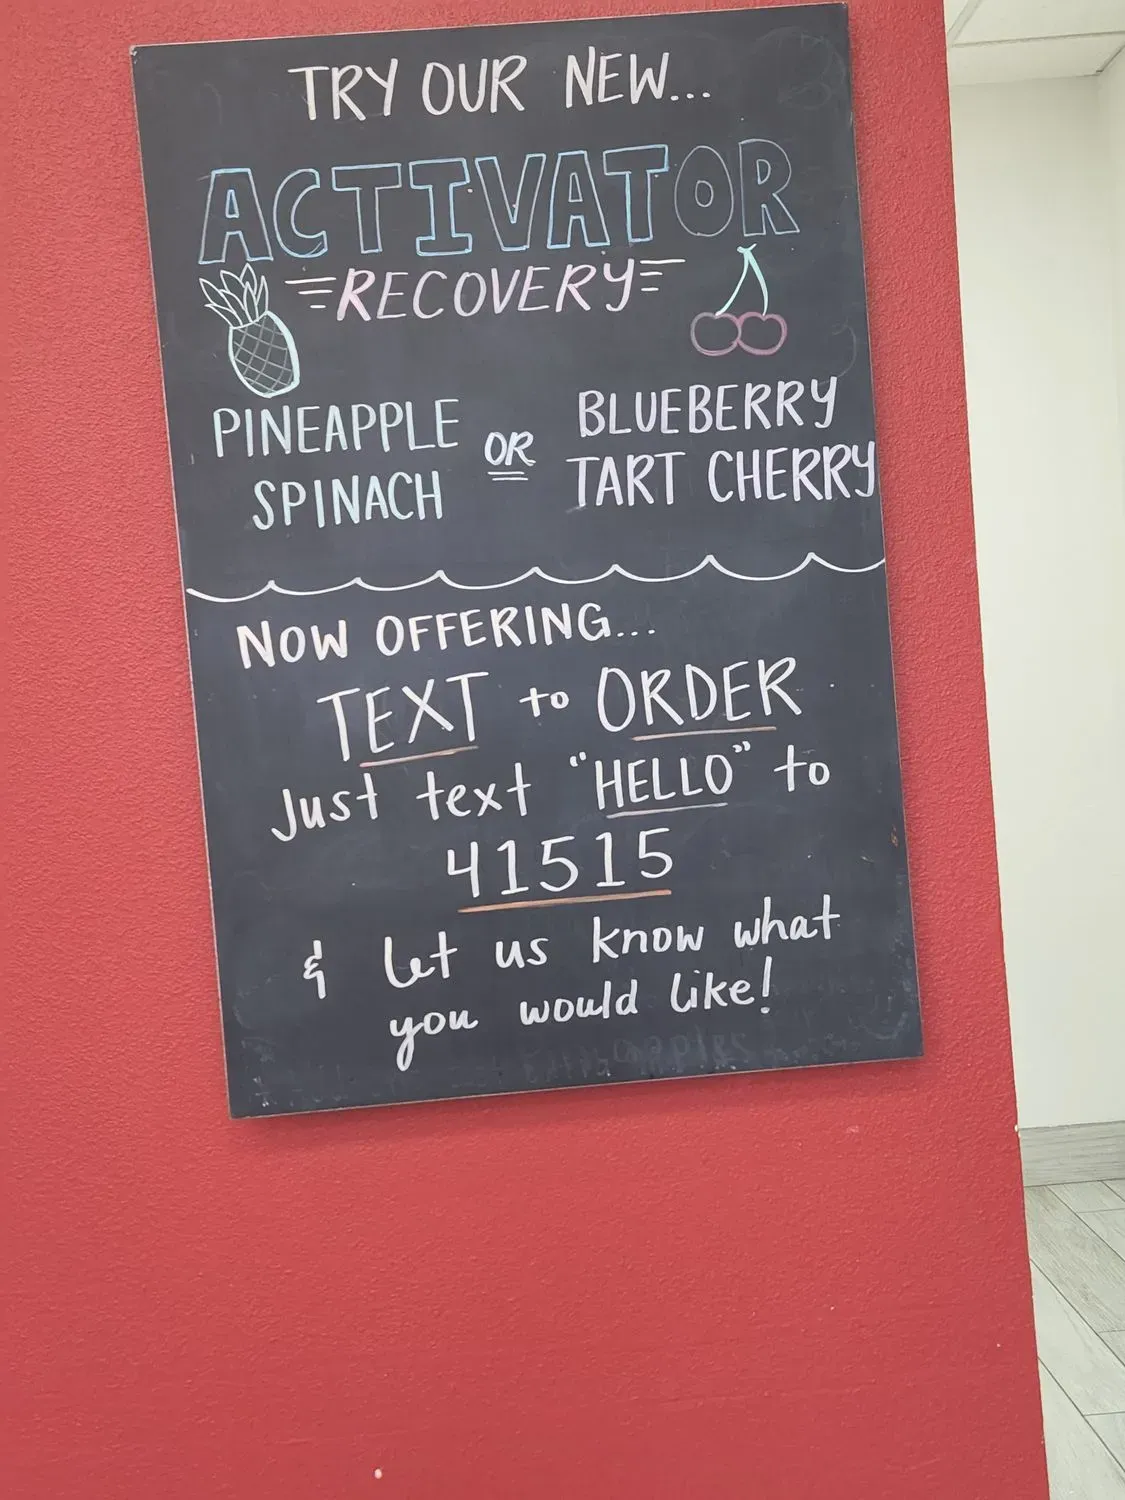 TRY OUR NEW...
ACTIVATOR
RECOVERY
PINEAPPLE
SPINACH
OR
BLUEBERRY
TART CHERRY
NOW OFFERING...
TEXT to ORDER
Just text "HELLO" to
41515
& let us know what
you would like!